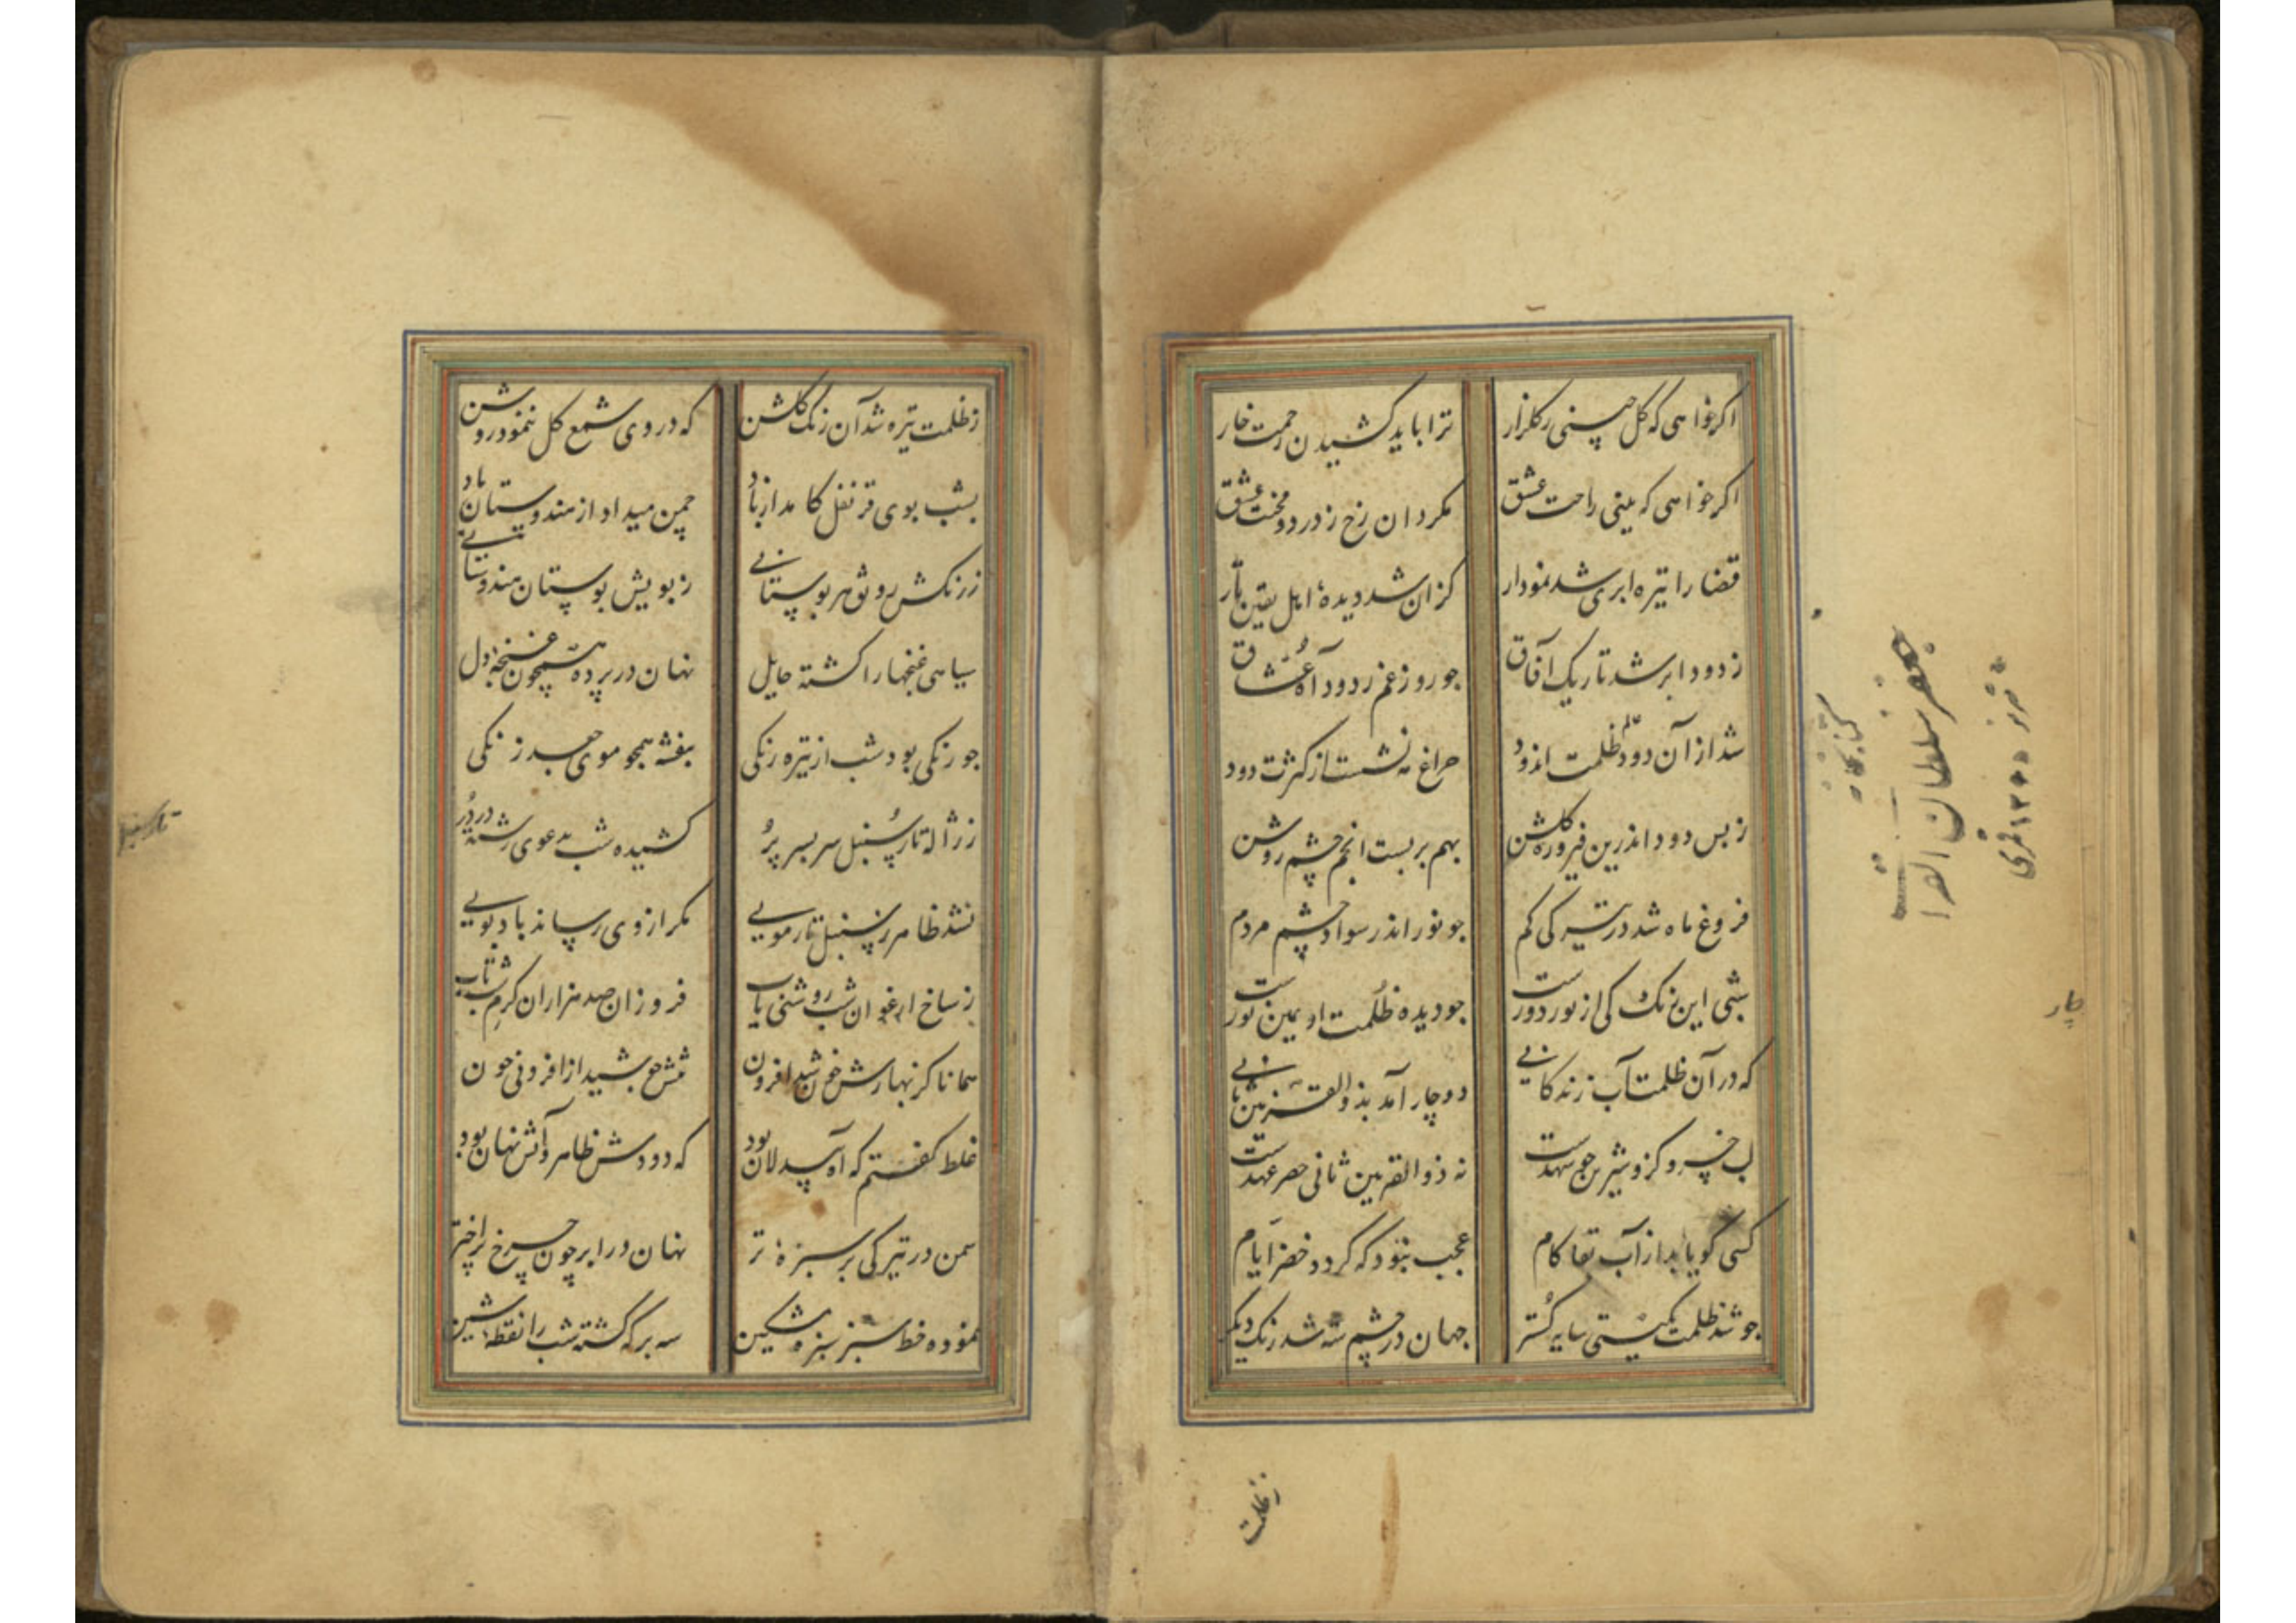 اکر خواهی که کل چینی ز کلزار ترا باید کشیدن زحمت خار
اکر خواهی که بینی راحت عشق مکردان رخ ز درد و محنت عشق
قضا را تیره ابری شد نمودار کزان شد دیدهٔ اهل یقین تار
ز دود ابر شد تاریک آفاق جو روز غم ز دود آه عُشّاق
شد از آن دود ظلمت اندود جراغ مه نشست از کثرت دود
ز بس دود اندرین فیروزه کلشن بهم بربست انجم چشم روشن
فروغ ماه شد در تیرکی کم جو نور اندر سواد چشم مردم
شبی این رنک کی از نور دورست جو دیده ظُلمت او عین نورست
که در آن ظلمت آب زندکانیی دوچار آمد بذوالقرنین ثانیی
لب خسرو کزو شیرین جو شهدست نه ذوالقرنین ثانی خضر عهدست
کسی کو یابد از آب بقا کام عجب نبود که کردد خضر ایام
جو شد ظلمت بکیتی سایه کُستر جهان در چشم شه شد رنک دیکر
ز ظلمت
ز ظلمت تیره شد آن رنک کلشن که در وی شمع کل ننمود روشن
بشب بوی قرنفل کامد از باد چمن میداد از هندوستان یاد
ز رنکش رونق هر بوستانیی ز بویش بوستان هندوستانیی
سیاهی غنچها را کشته حایل نهان در پرده همچون غنچهٔ دل
جو زنکی بود شب از تیره رنکی بنفشه همجو موی جعد زنکی
ز ژاله تار سُنبل سربسر پُر کشیده شب بدعوی رشتهٔ دُر
نشد ظاهر ز سنبل تار موییی مکر از وی رساند باد بوییی
ز شاخ ارغوان شب روشنی یاب فروزان صد هزاران کرم شب تاب
همانا کز بهارش خون شد افزون تنش جوشید از افزونی خون
غلط کفتم که آه بیدلان بود که دودش ظاهر و آتش نهان بود
سمن در تیرکی بر سبزهٔ تر نهان در ابر چون چرخ پر اختر
نموده خط سبز سبزه مشکین سه برکه کشته شب را نقطهٔ شین
کتابخانه
جعفر سلطان القرا